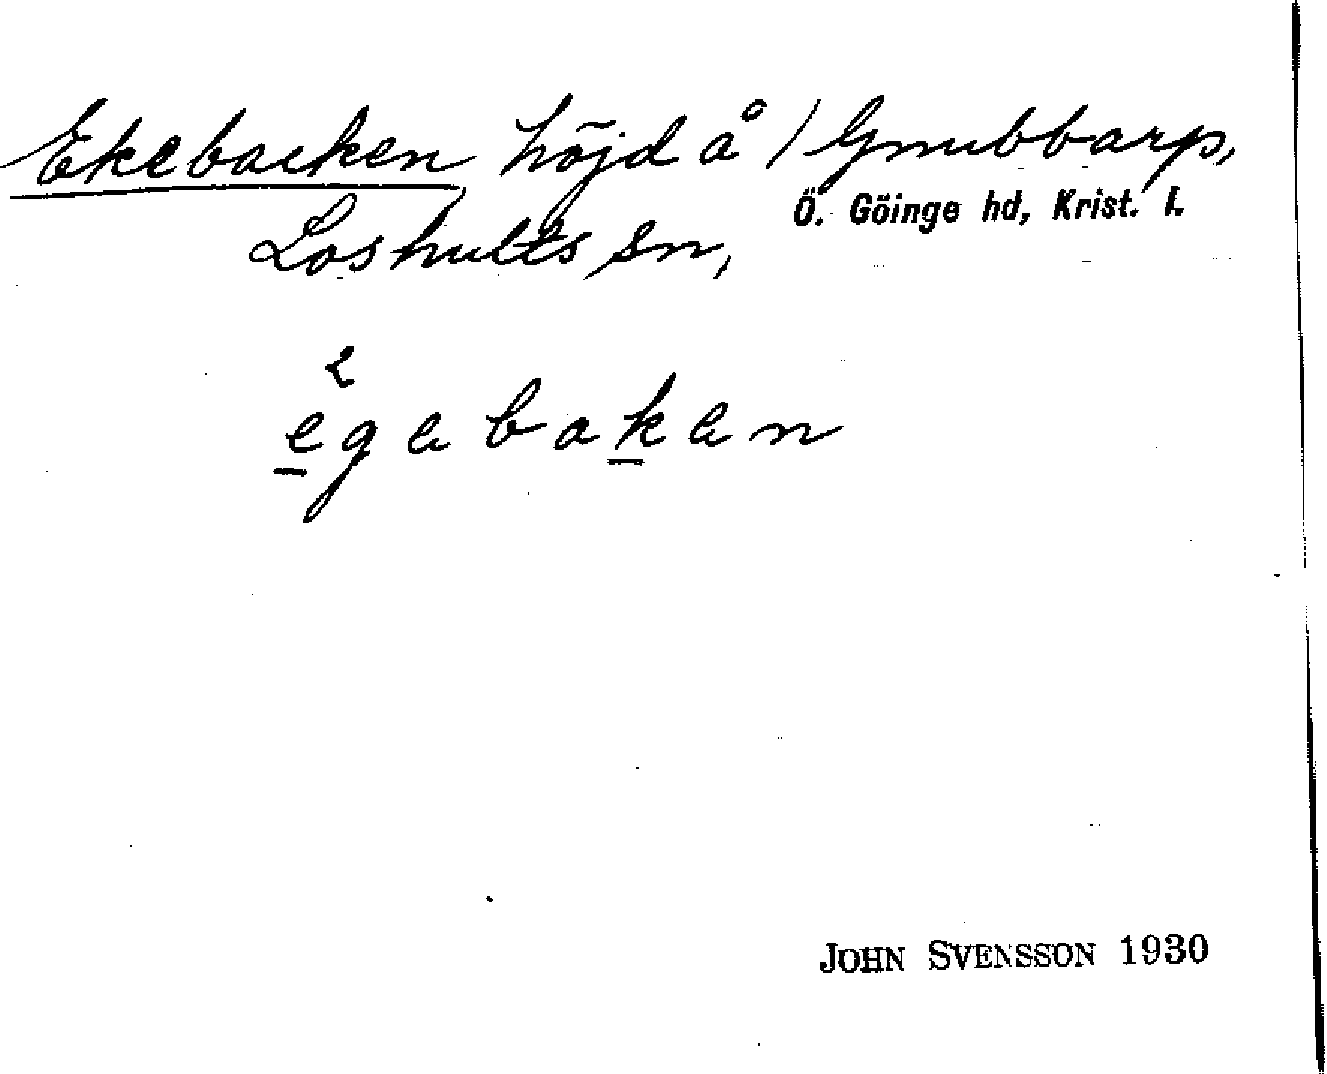 Ekebacken höjd å / Gnubbarp,
Ö. Göinge hd, Krist. l.
Loshults sn,
egebaken
JOHN SVENSSON 1930